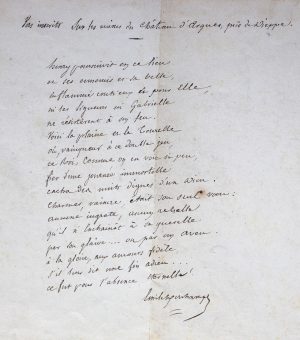 Vers inscrits Sur les ruines du Château d'Arques, près de Dieppe.
Henry poursuivit en ce lieu
et ses ennemis et sa belle,
enflammé contre eux et pour Elle,
ni les ligueurs ni Gabrielle
ne résistèrent à son feu.
Voici la plaine et la Tourelle
où, vainqueur à ce double jeu,
ce Roi, comme on en voit si peu,
fier d'une prouesse immortelle
cacha des nuits dignes d'un adieu.
Charmer, vaincre, était son seul vœu:
aucune ingrate, aucun rebelle
qu'il n'enchaînât à sa querelle
par son glaive ... ou par son aveu.
à la gloire, aux amours fidèle
s'il leur dit une fois adieu ...
ce fut pour l'absence éternelle!
Emile Deschamps